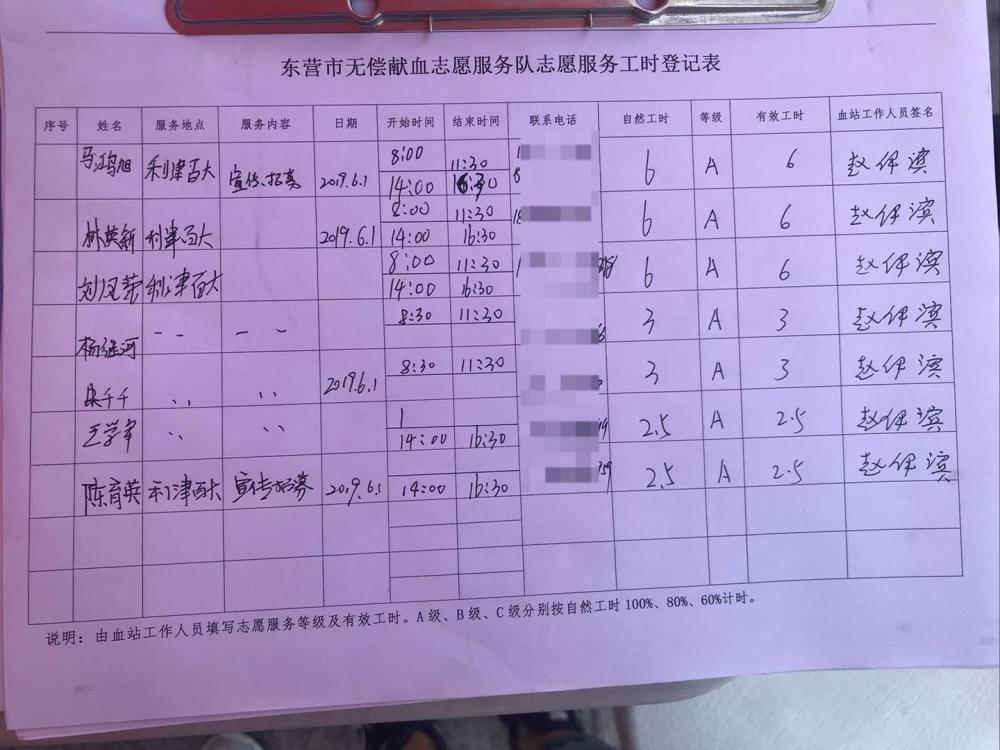 东营市无偿献血志愿服务队志愿服务工时登记表
序号 姓名 服务地点 服务内容 日期 开始时间 结束时间 联系电话 自然工时 等级 有效工时 血站工作人员签名
马鸿旭 利津百大 宣传、招募 2019.6.1 8:00 11:30 6 A 6 赵伊滨
14:00 16:30
林英新 利津百大 2019.6.1 8:00 11:30 6 A 6 赵伊滨
14:00 16:30
刘凤荣 利津百大 8:00 11:30 6 A 6 赵伊滨
14:00 16:30
杨继河 8:30 11:30 3 A 3 赵伊滨
千千 2019.6.1 8:30 11:30 3 A 3 赵伊滨
王学军 14:00 16:30 2.5 A 2.5 赵伊滨
陈育英 利津百大 宣传招募 2019.6.1 14:00 16:30 2.5 A 2.5 赵伊滨
说明：由血站工作人员填写志愿服务等级及有效工时。A级、B级、C级分别按自然工时100%、80%、60%计时。